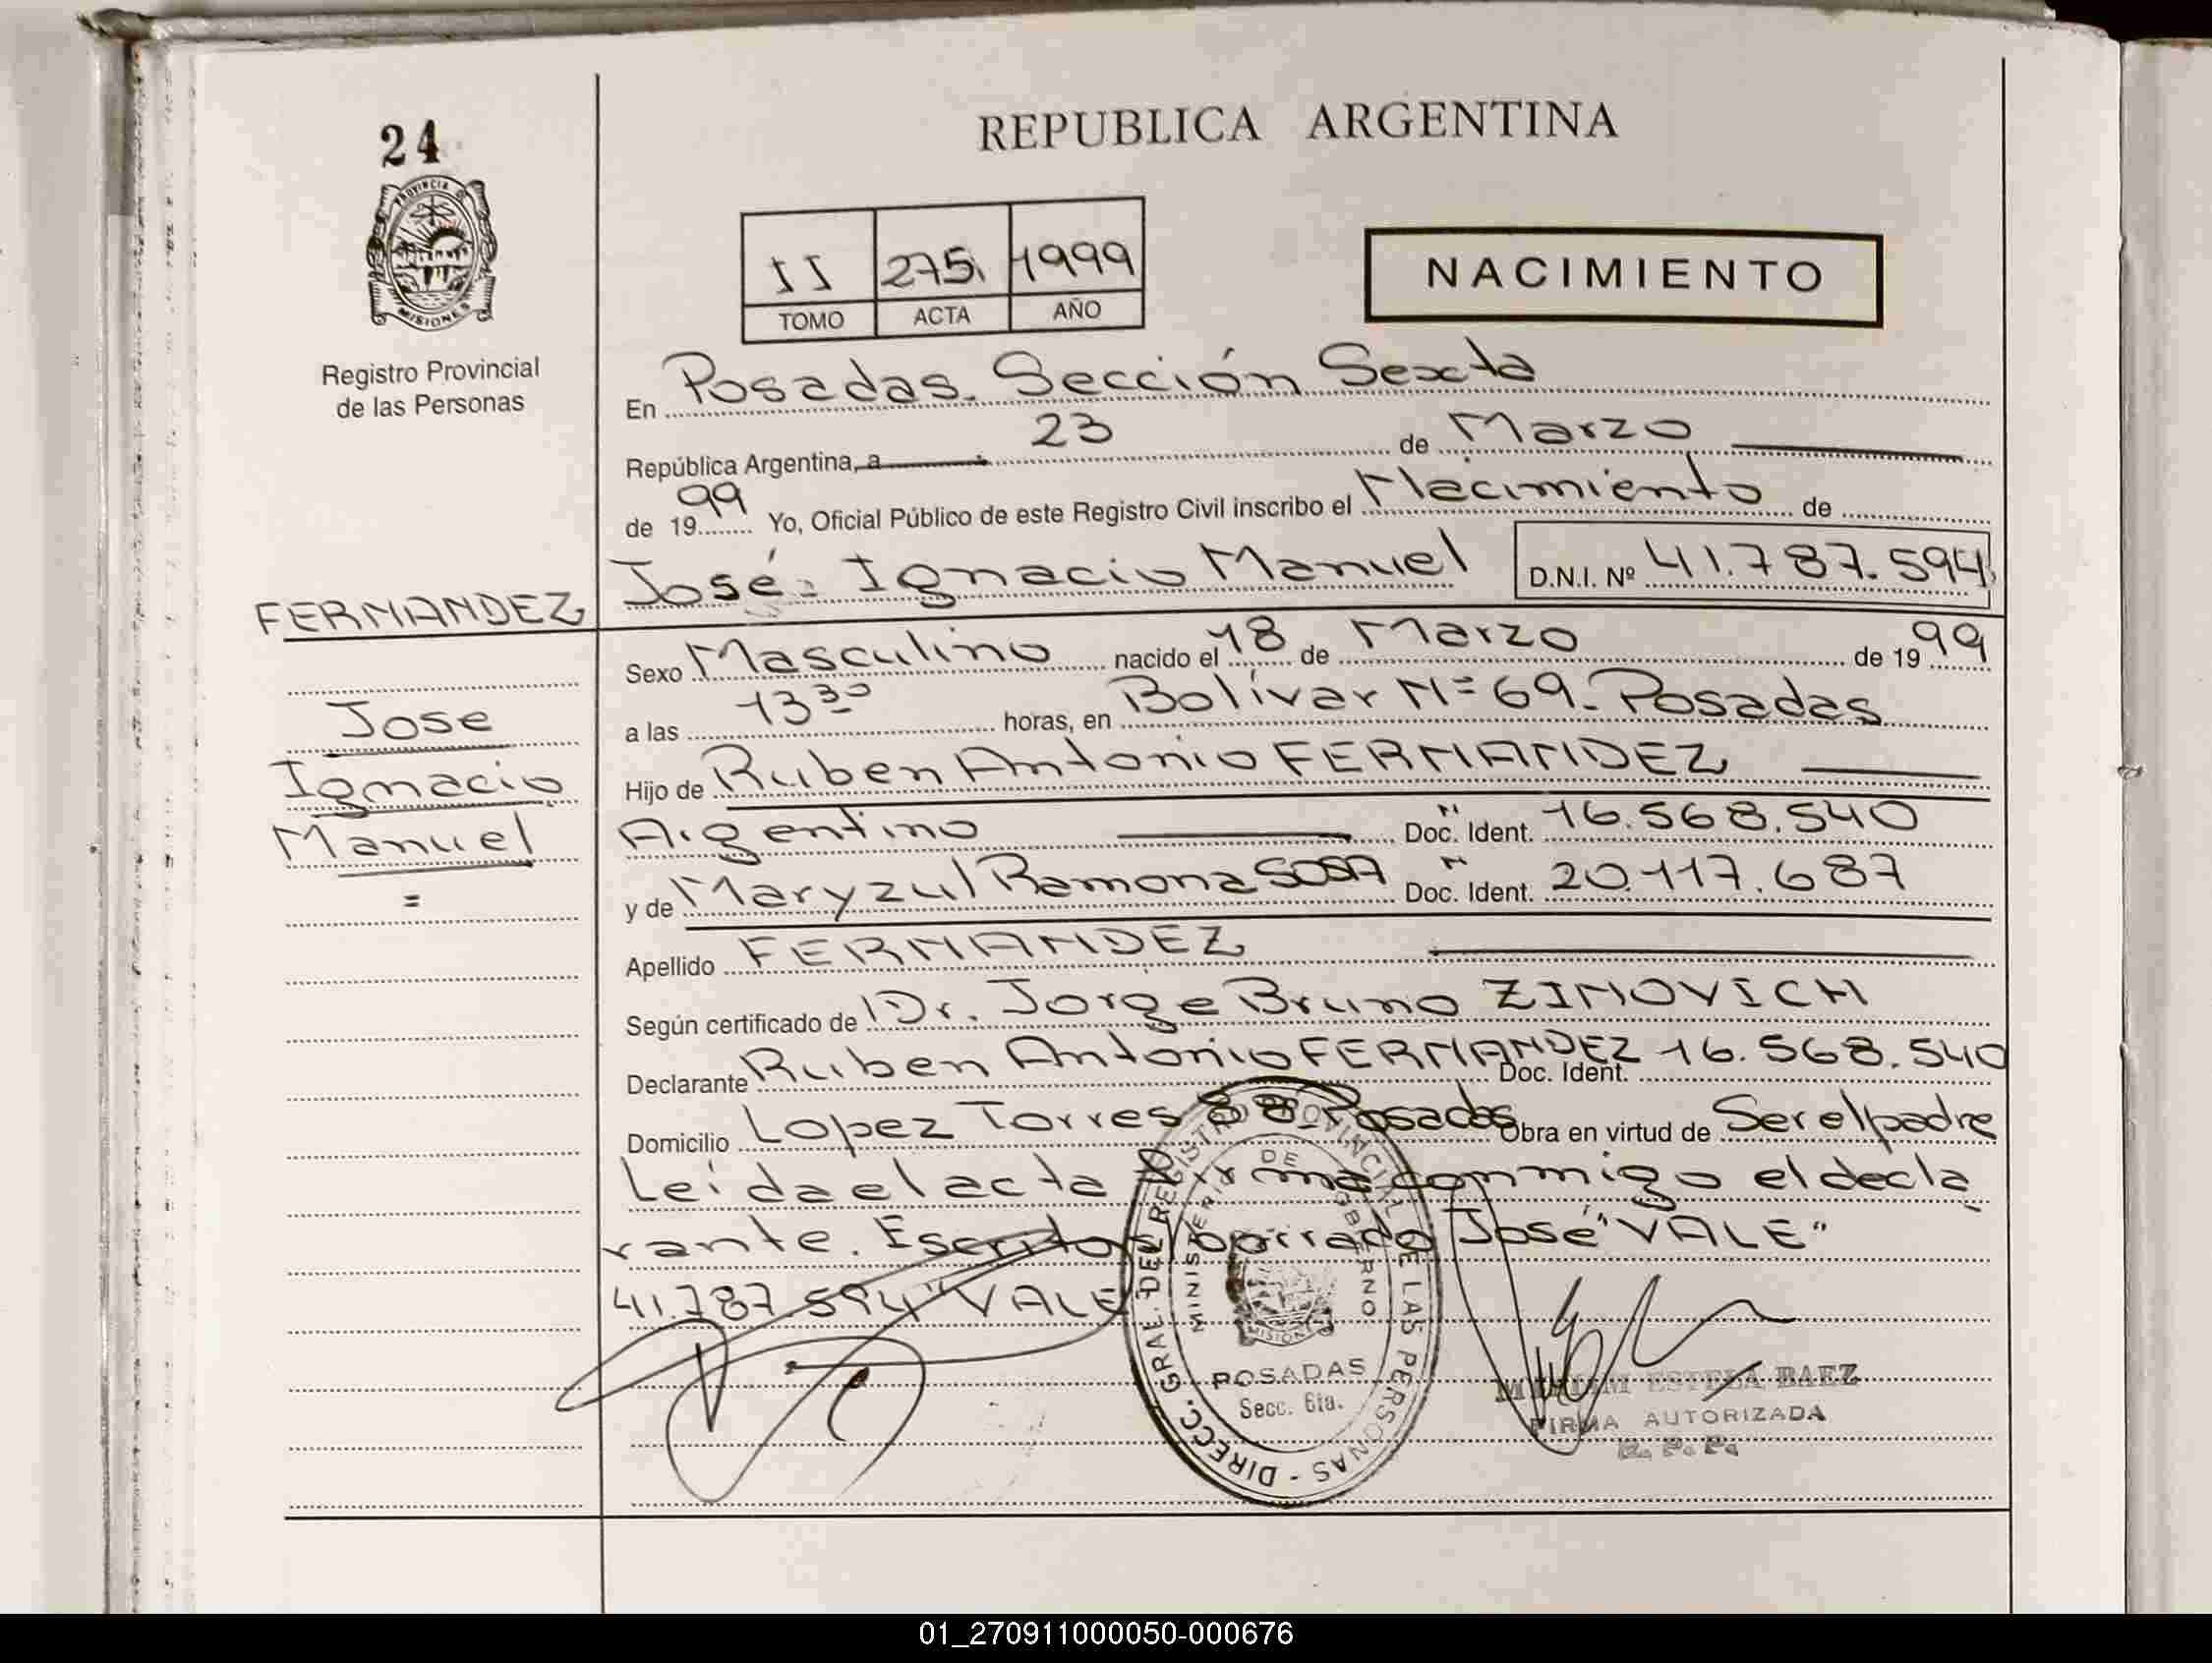 24
PROVINCIA DE
MISIONES
Registro Provincial
de las Personas
FERNANDEZ
Jose
Ignacio
Manuel
=
REPUBLICA ARGENTINA
II 275 1999
TOMO ACTA AÑO
NACIMIENTO
En Posadas. Sección Sexta
República Argentina, a 23 de Marzo
de 1999 Yo, Oficial Público de este Registro Civil inscribo el Nacimiento de
José Ignacio Manuel D.N.I. Nº 41.787.594
Sexo Masculino nacido el 18 de Marzo de 1999
a las 13 30 horas, en Bolívar Nº 69. Posadas
Hijo de Ruben Antonio FERNANDEZ
Argentino Doc. Ident. 16.568.540
y de Maryzul Ramona SOSA Doc. Ident. 20.117.687
Apellido FERNANDEZ
Según certificado de Dr. Jorge Bruno ZINOVICH
Declarante Ruben Antonio FERNANDEZ Doc. Ident. 16.568.540
Domicilio Lopez Torres 88 Posadas Obra en virtud de Ser el padre
Leída el acta firma conmigo el decla
rante. Escrito s/borrado José "VALE"
41.787.594 "VALE
DIRECC. GRAL. DEL REGISTRO PROVINCIAL DE LAS PERSONAS -
MINISTERIO DE GOBIERNO
MISIONES
POSADAS
Secc. 6ta.
MIRIAM ESTELA BAEZ
FIRMA AUTORIZADA
R. P. P.
01_270911000050-000676